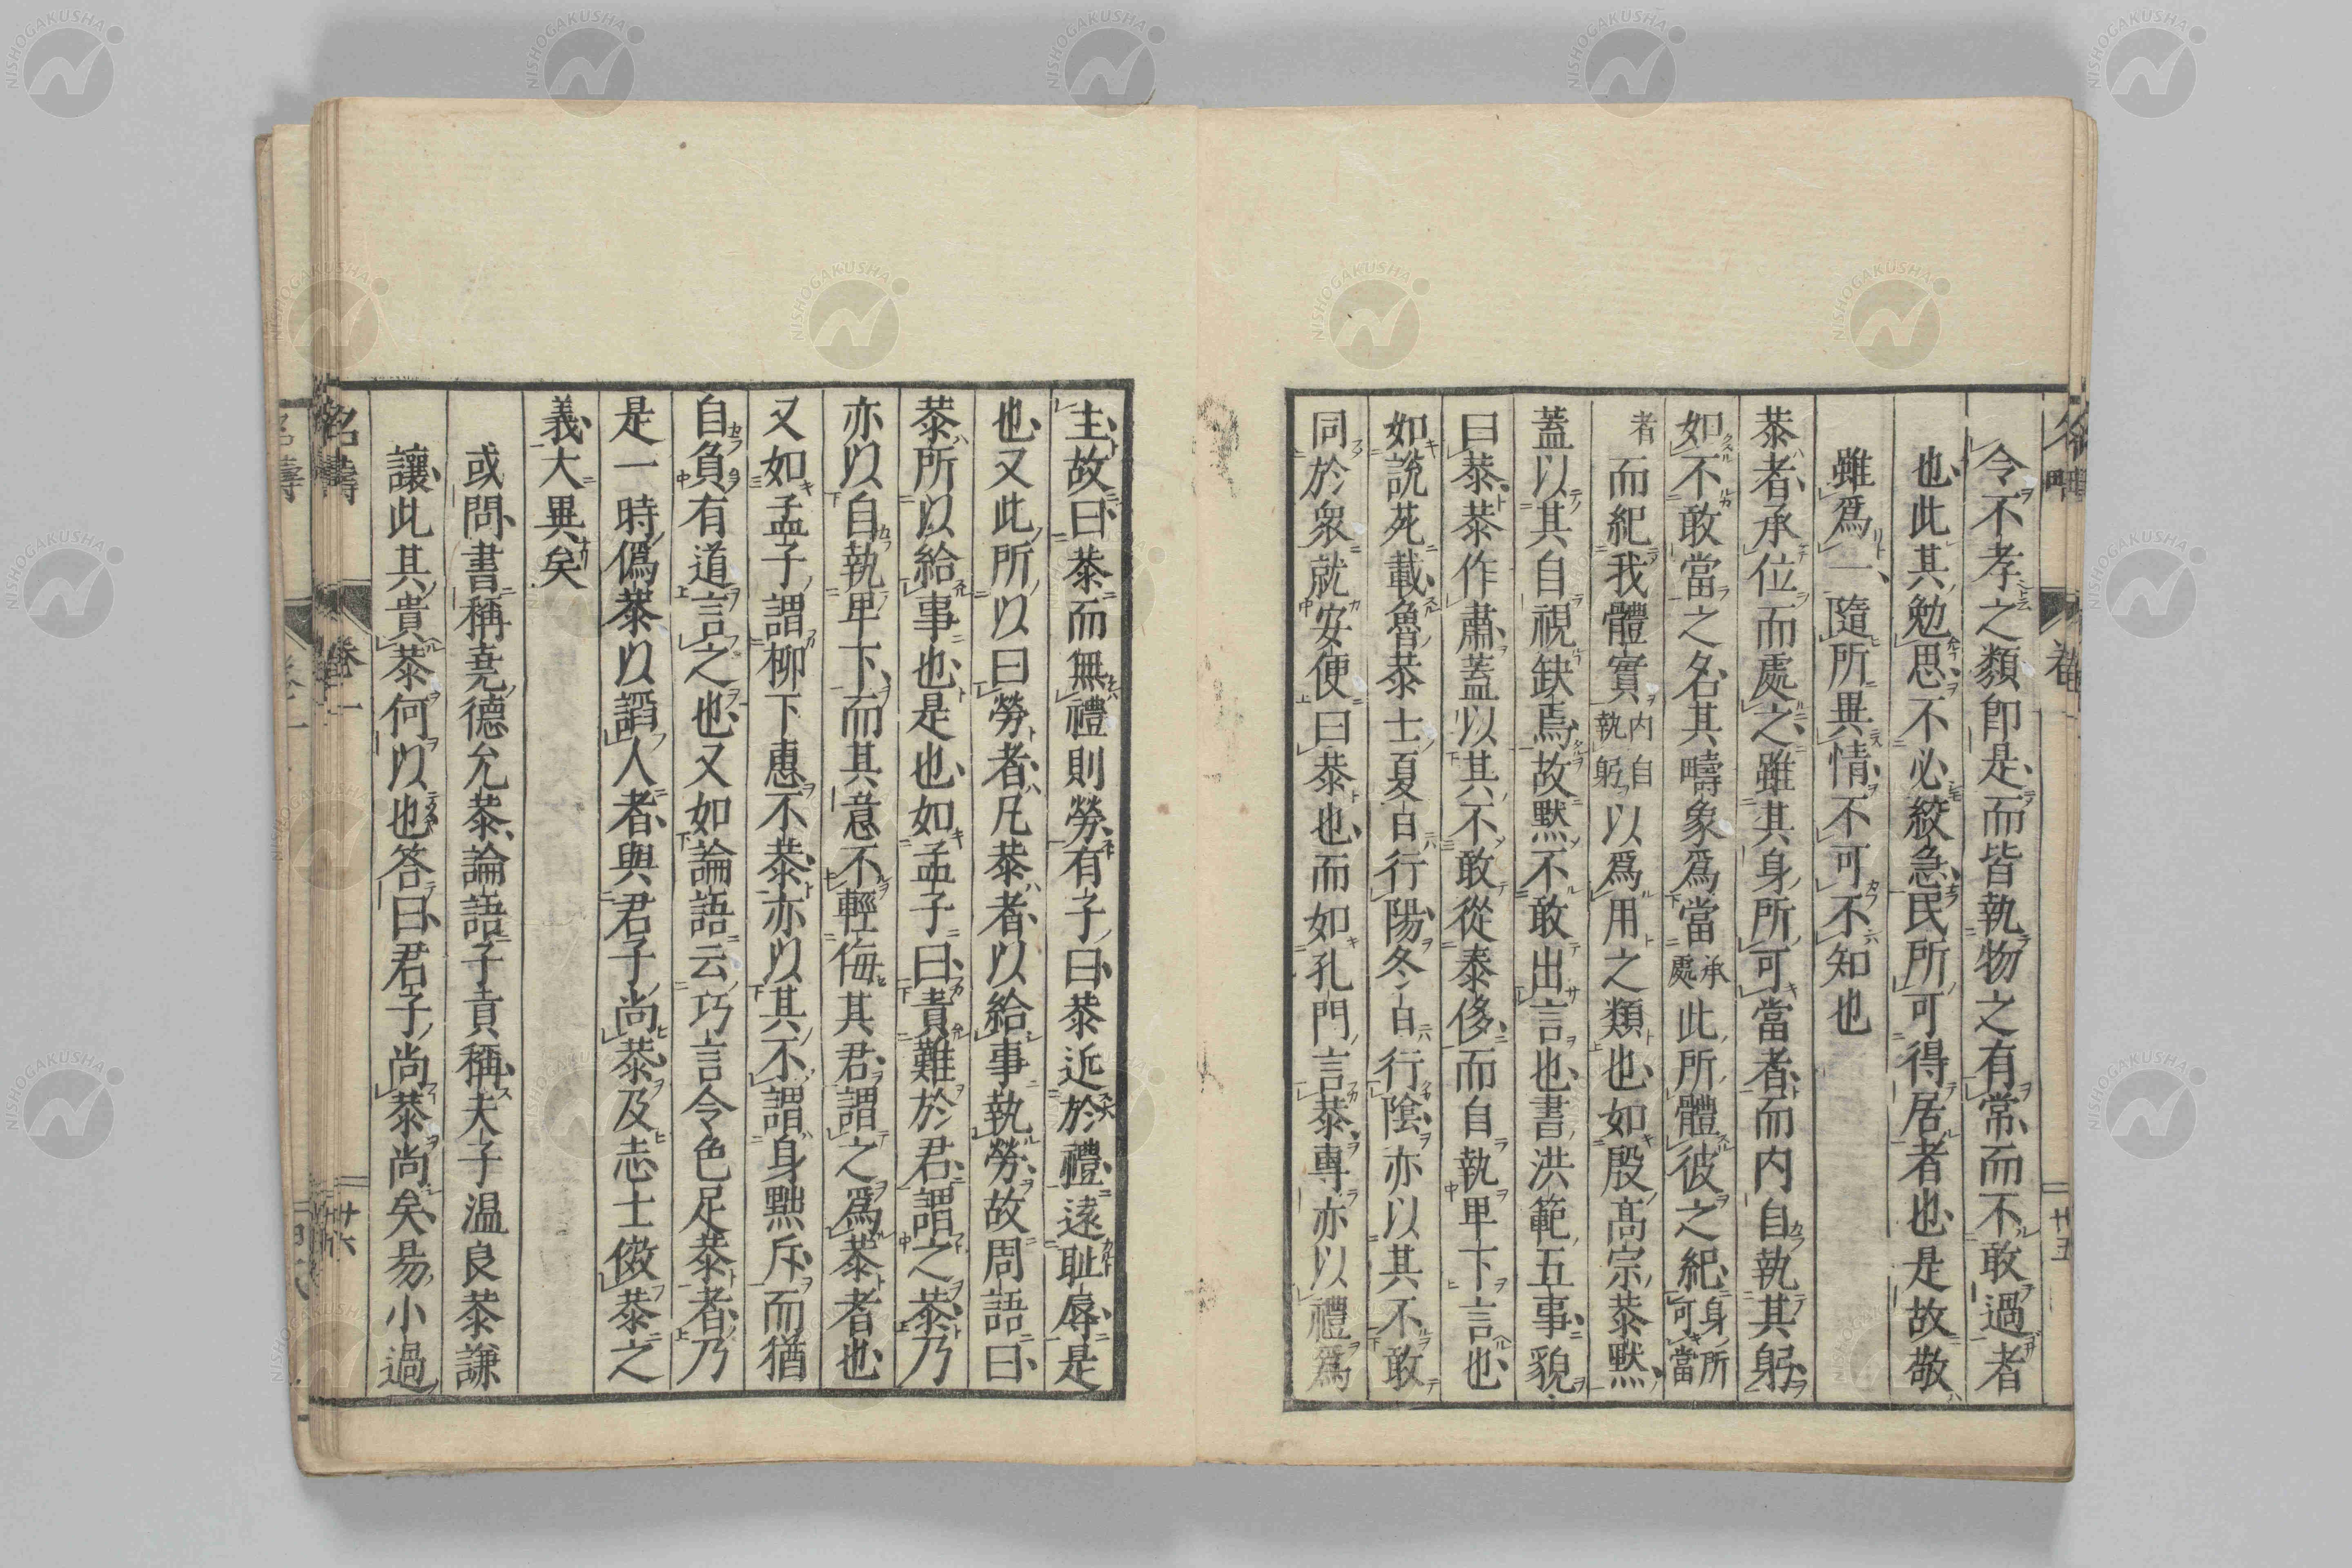 令不孝之類卽是而皆執物之有常而不敢過者
也此其勉思不必絞急民所可得居者也是故敬
雖爲一隨所異情不可不知也
恭者承位而處之雖其身所可當者而内自執其躬
如不敢當之名其疇象爲當承處此所體彼之紀身所可當
者而紀我體實内自執躬以爲用之類也如殷高宗恭默
蓋以其自視缺焉故默不敢出言也書洪範五事貌
曰恭恭作肅蓋以其不敢從泰侈而自執卑下言也
如說苑載魯恭士夏日行陽冬日行陰亦以其不敢
同於衆就安便曰恭也而如孔門言恭專亦以禮爲
主故曰恭而無禮則勞有子曰恭近於禮遠耻辱是
也又此所以曰勞者凡恭者以給事執勞故周語曰
恭所以給事也是也如孟子曰責難於君謂之恭乃
亦以自執卑下而其意不輕侮其君謂之爲恭者也
又如孟子謂柳下惠不恭亦以其不謂身黙斥而猶
自負有道言之也又如論語云巧言令色足恭者乃
是一時僞恭以謟人者與君子尚恭及志士儆恭之
義大異矣
或問書稱堯德允恭論語子貢稱夫子温良恭謙
讓此其貴恭何以也答曰君子尚恭尚矣易小過
名疇
卷一
廿五
名疇
卷一
廿六